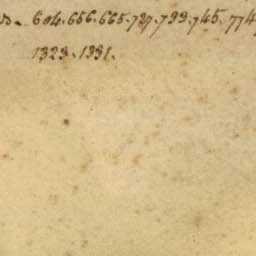 604.656.665.737.739.745.774
1323.1331.